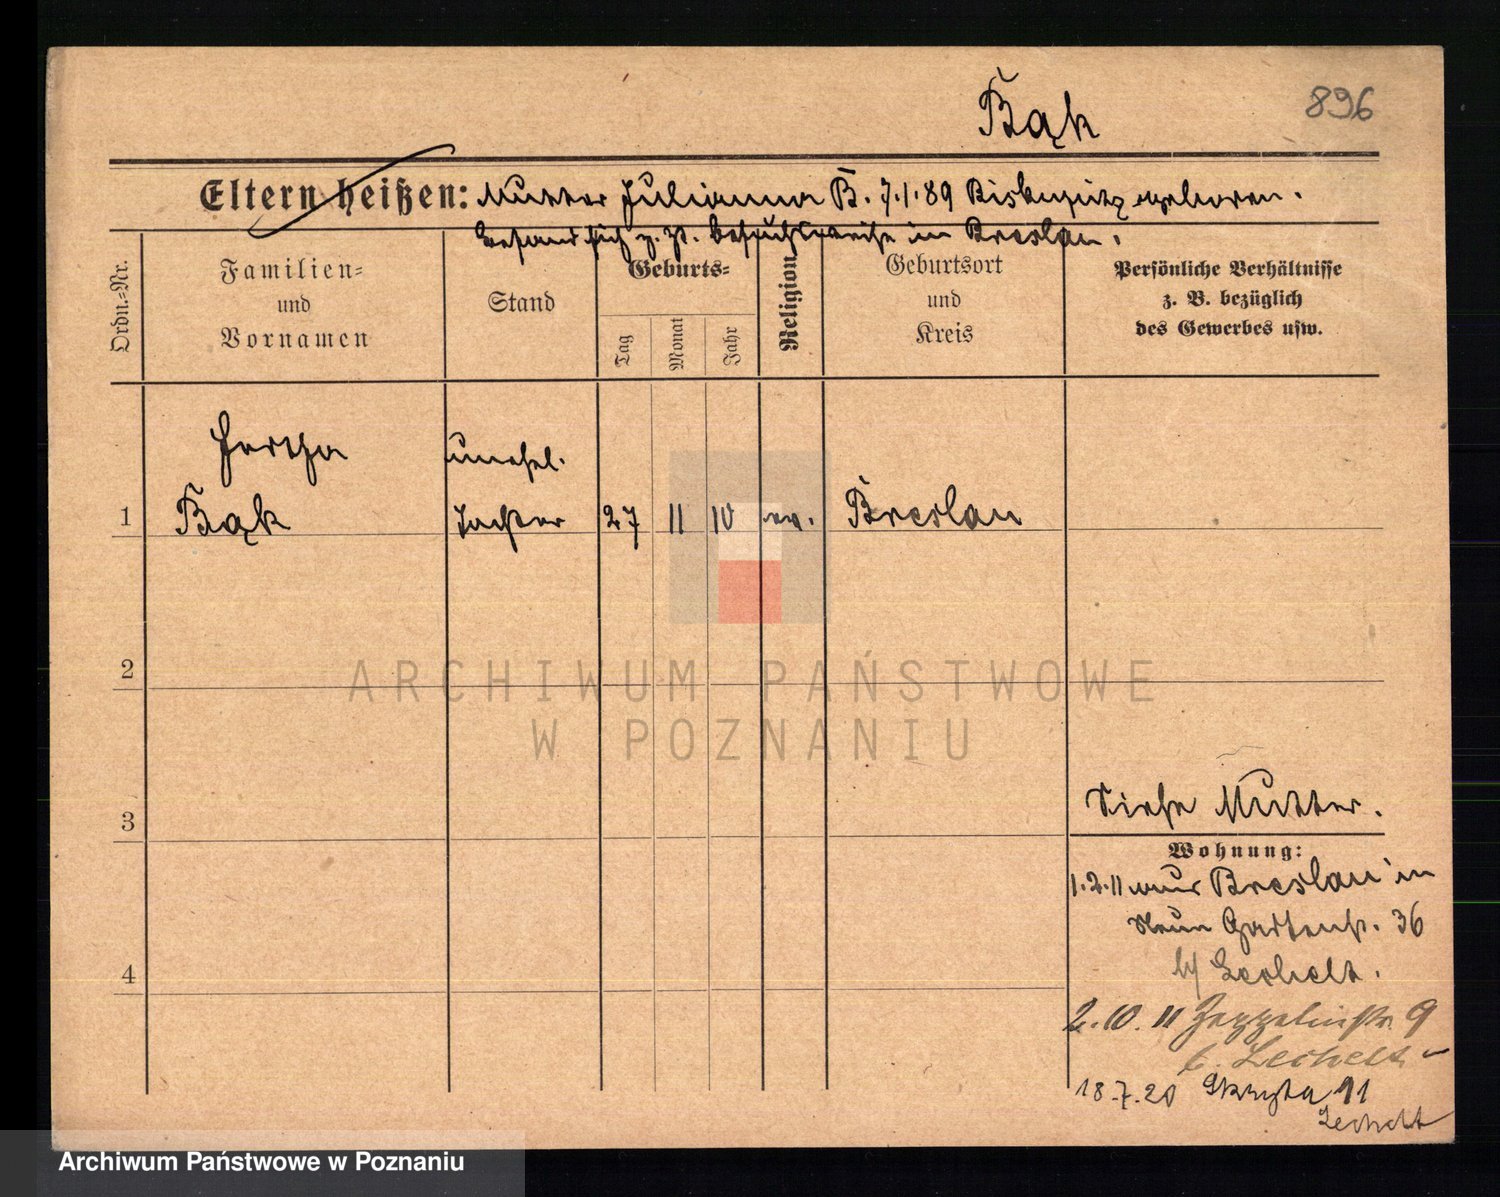 Bąk
896
Eltern heißen: Mutter Julianna B. 7.1.89 Biskupitz geboren.
befand sich z. Zt. besuchsweise in Breslau.
Ordn.=Nr.
Familien=
und
Vornamen
Stand
Geburts=
Tag
Monat
Jahr
Religion
Geburtsort
und
Kreis
Persönliche Verhältnisse
z. B. bezüglich
des Gewerbes usw.
Hertha unehel.
1 Bąk Tochter 27 11 10 ev. Breslau
2
3
4
Siehe Mutter.
Wohnung:
1.2.11 aus Breslau in
Neue Gartenstr. 36
b/ Lechelt.
2.10.11 Zeppelinstr. 9
b. Lechelt
18.7.20 Skryta 11
Lechelt
ARCHIWUM PAŃSTWOWE
W POZNANIU
Archiwum Państwowe w Poznaniu